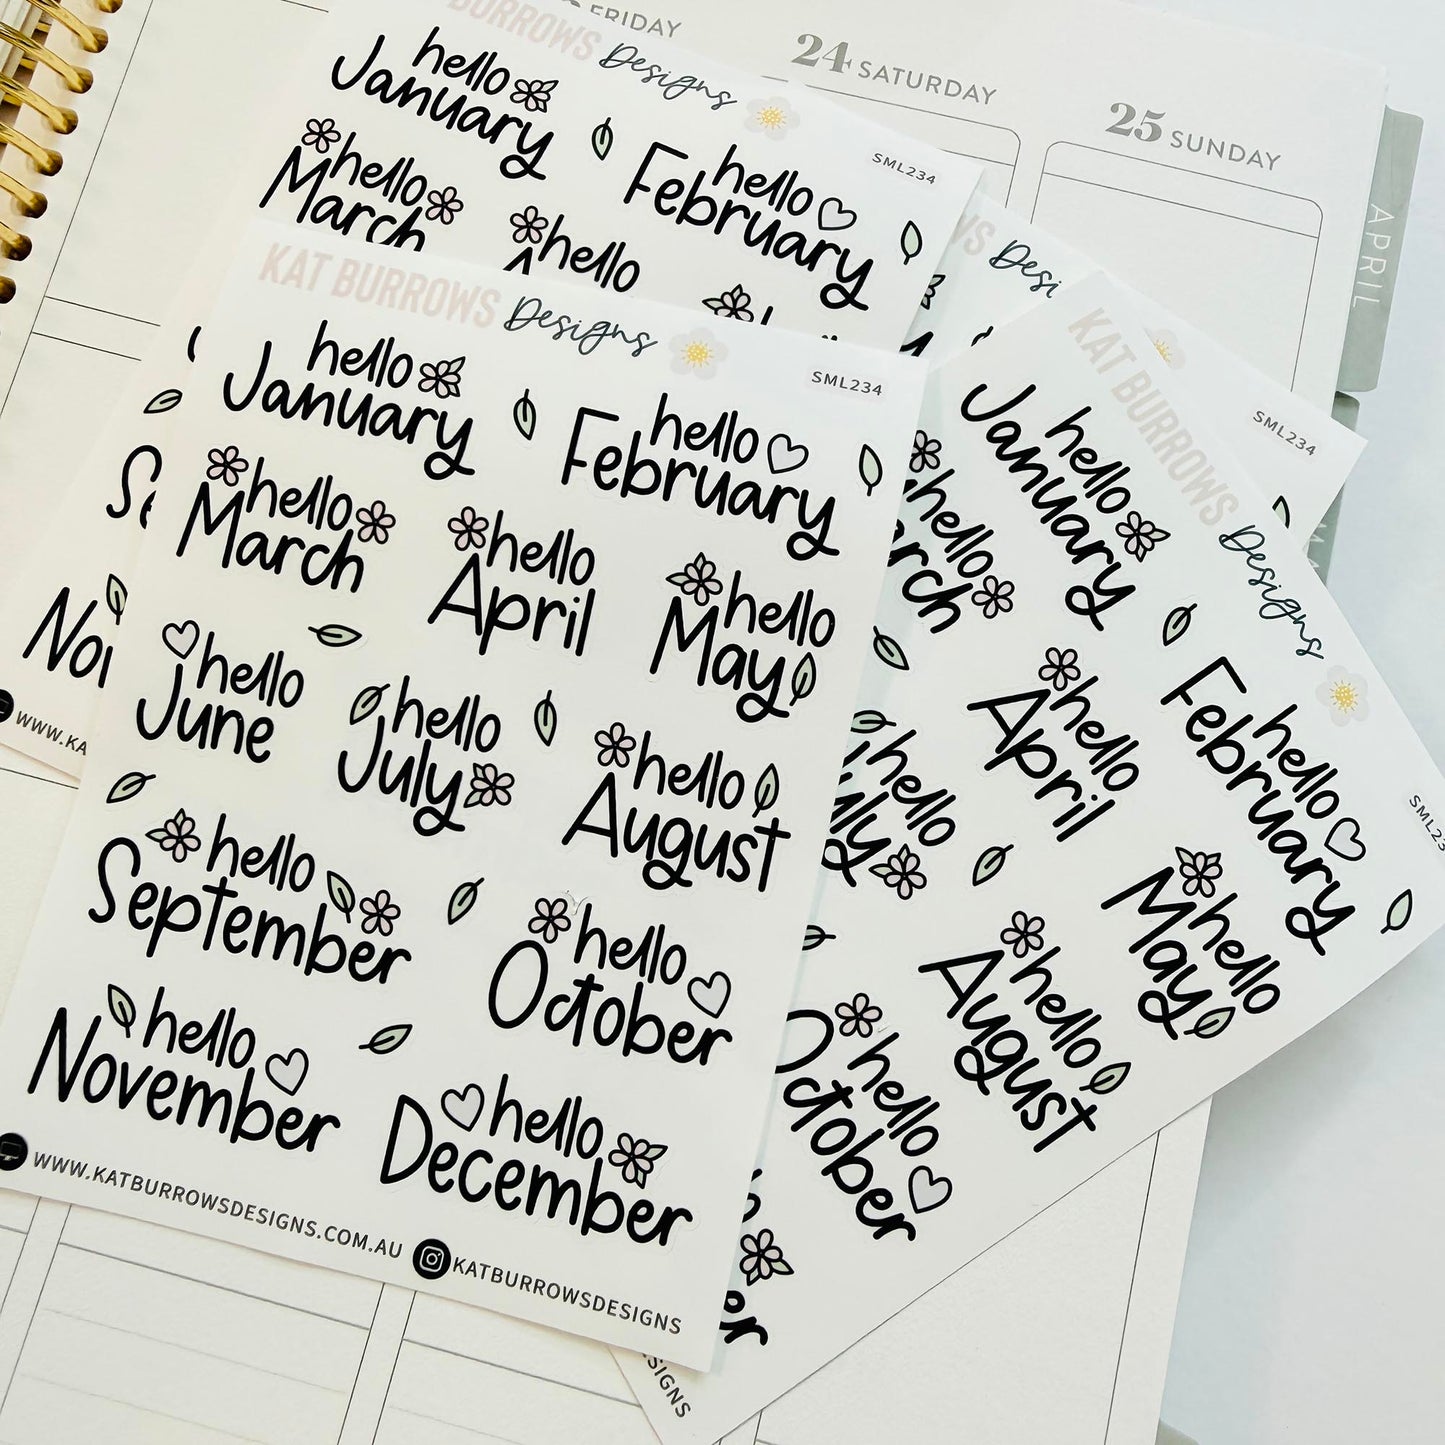 FRIDAY
24 SATURDAY
25 SUNDAY
APRIL
BURROWS Designs
SML234
hello January
hello February
hello March
hello
KAT BURROWS Designs
SML234
hello January
hello February
hello March
hello April
hello May
hello June
hello July
hello August
hello September
hello October
hello November
hello December
WWW.KATBURROWSDESIGNS.COM.AU
KATBURROWSDESIGNS
WWW.KA
SML234
KAT BURROWS Designs
hello January
hello February
hello
hello April
hello May
hello
hello August
hello